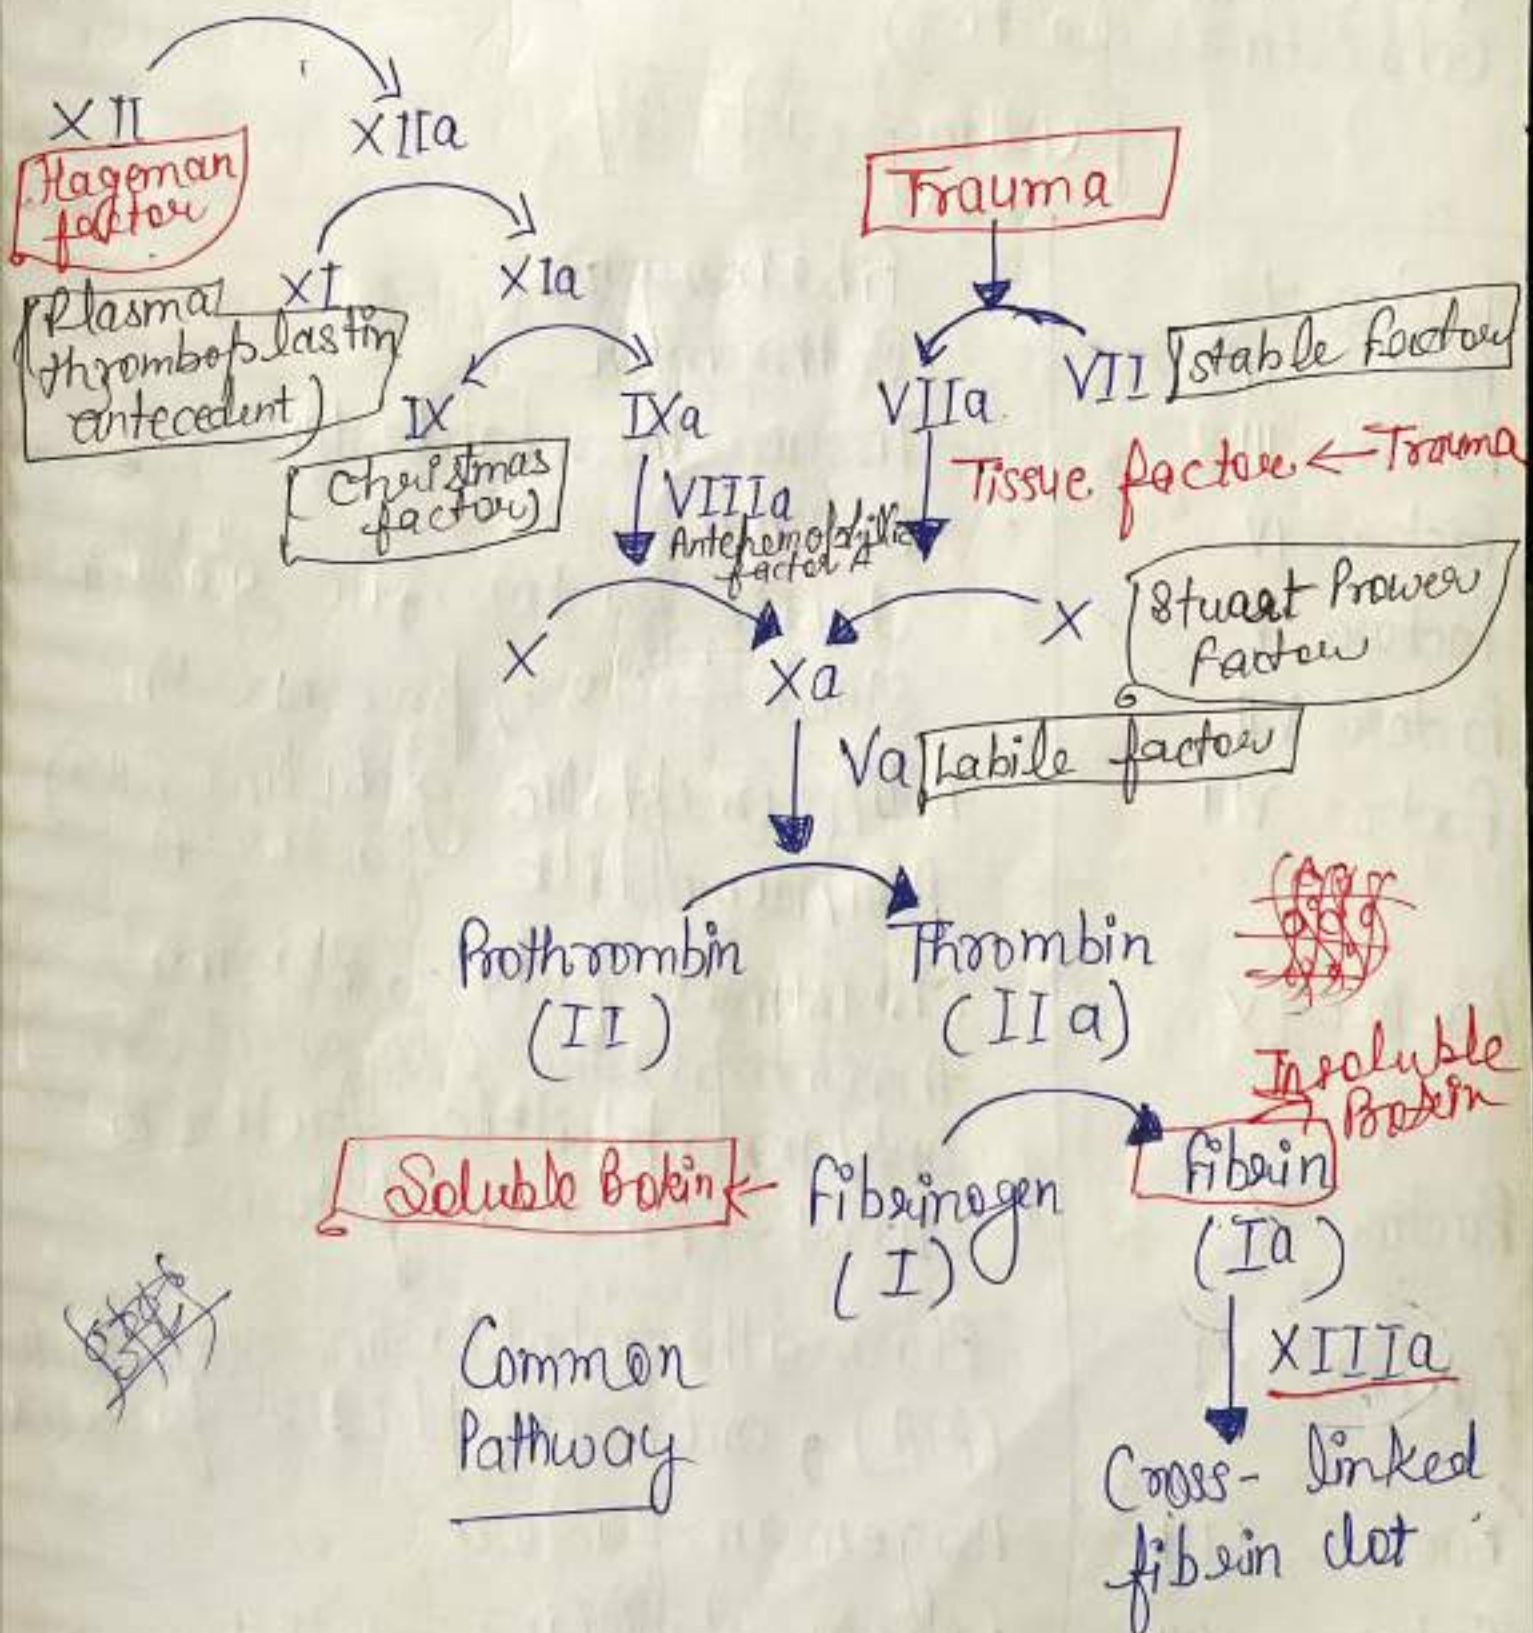 XII
XIIa
Hageman
factor
Trauma
XI
XIa
(Plasma
thromboplastin
antecedent)
VII
stable factor
VIIa
IX
IXa
Christmas
factor)
Tissue factor ← Trauma
VIIIa
Antehemophillic
factor A
X
X
Stuart Prower
factor
Xa
Va
Labile factor
Prothrombin
(II)
Thrombin
(IIa)
Insoluble
Protein
Soluble Protein ←
Fibrinogen
(I)
Fibrin
(Ia)
XIIIa
Common
Pathway
Cross-linked
fibrin clot